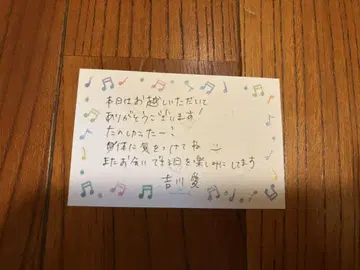 本日はお越しいただいて
ありがとうございます!
たのしかったー?
身体に気をつけてね
またお会いできる日を楽しみにしてます
吉川愛